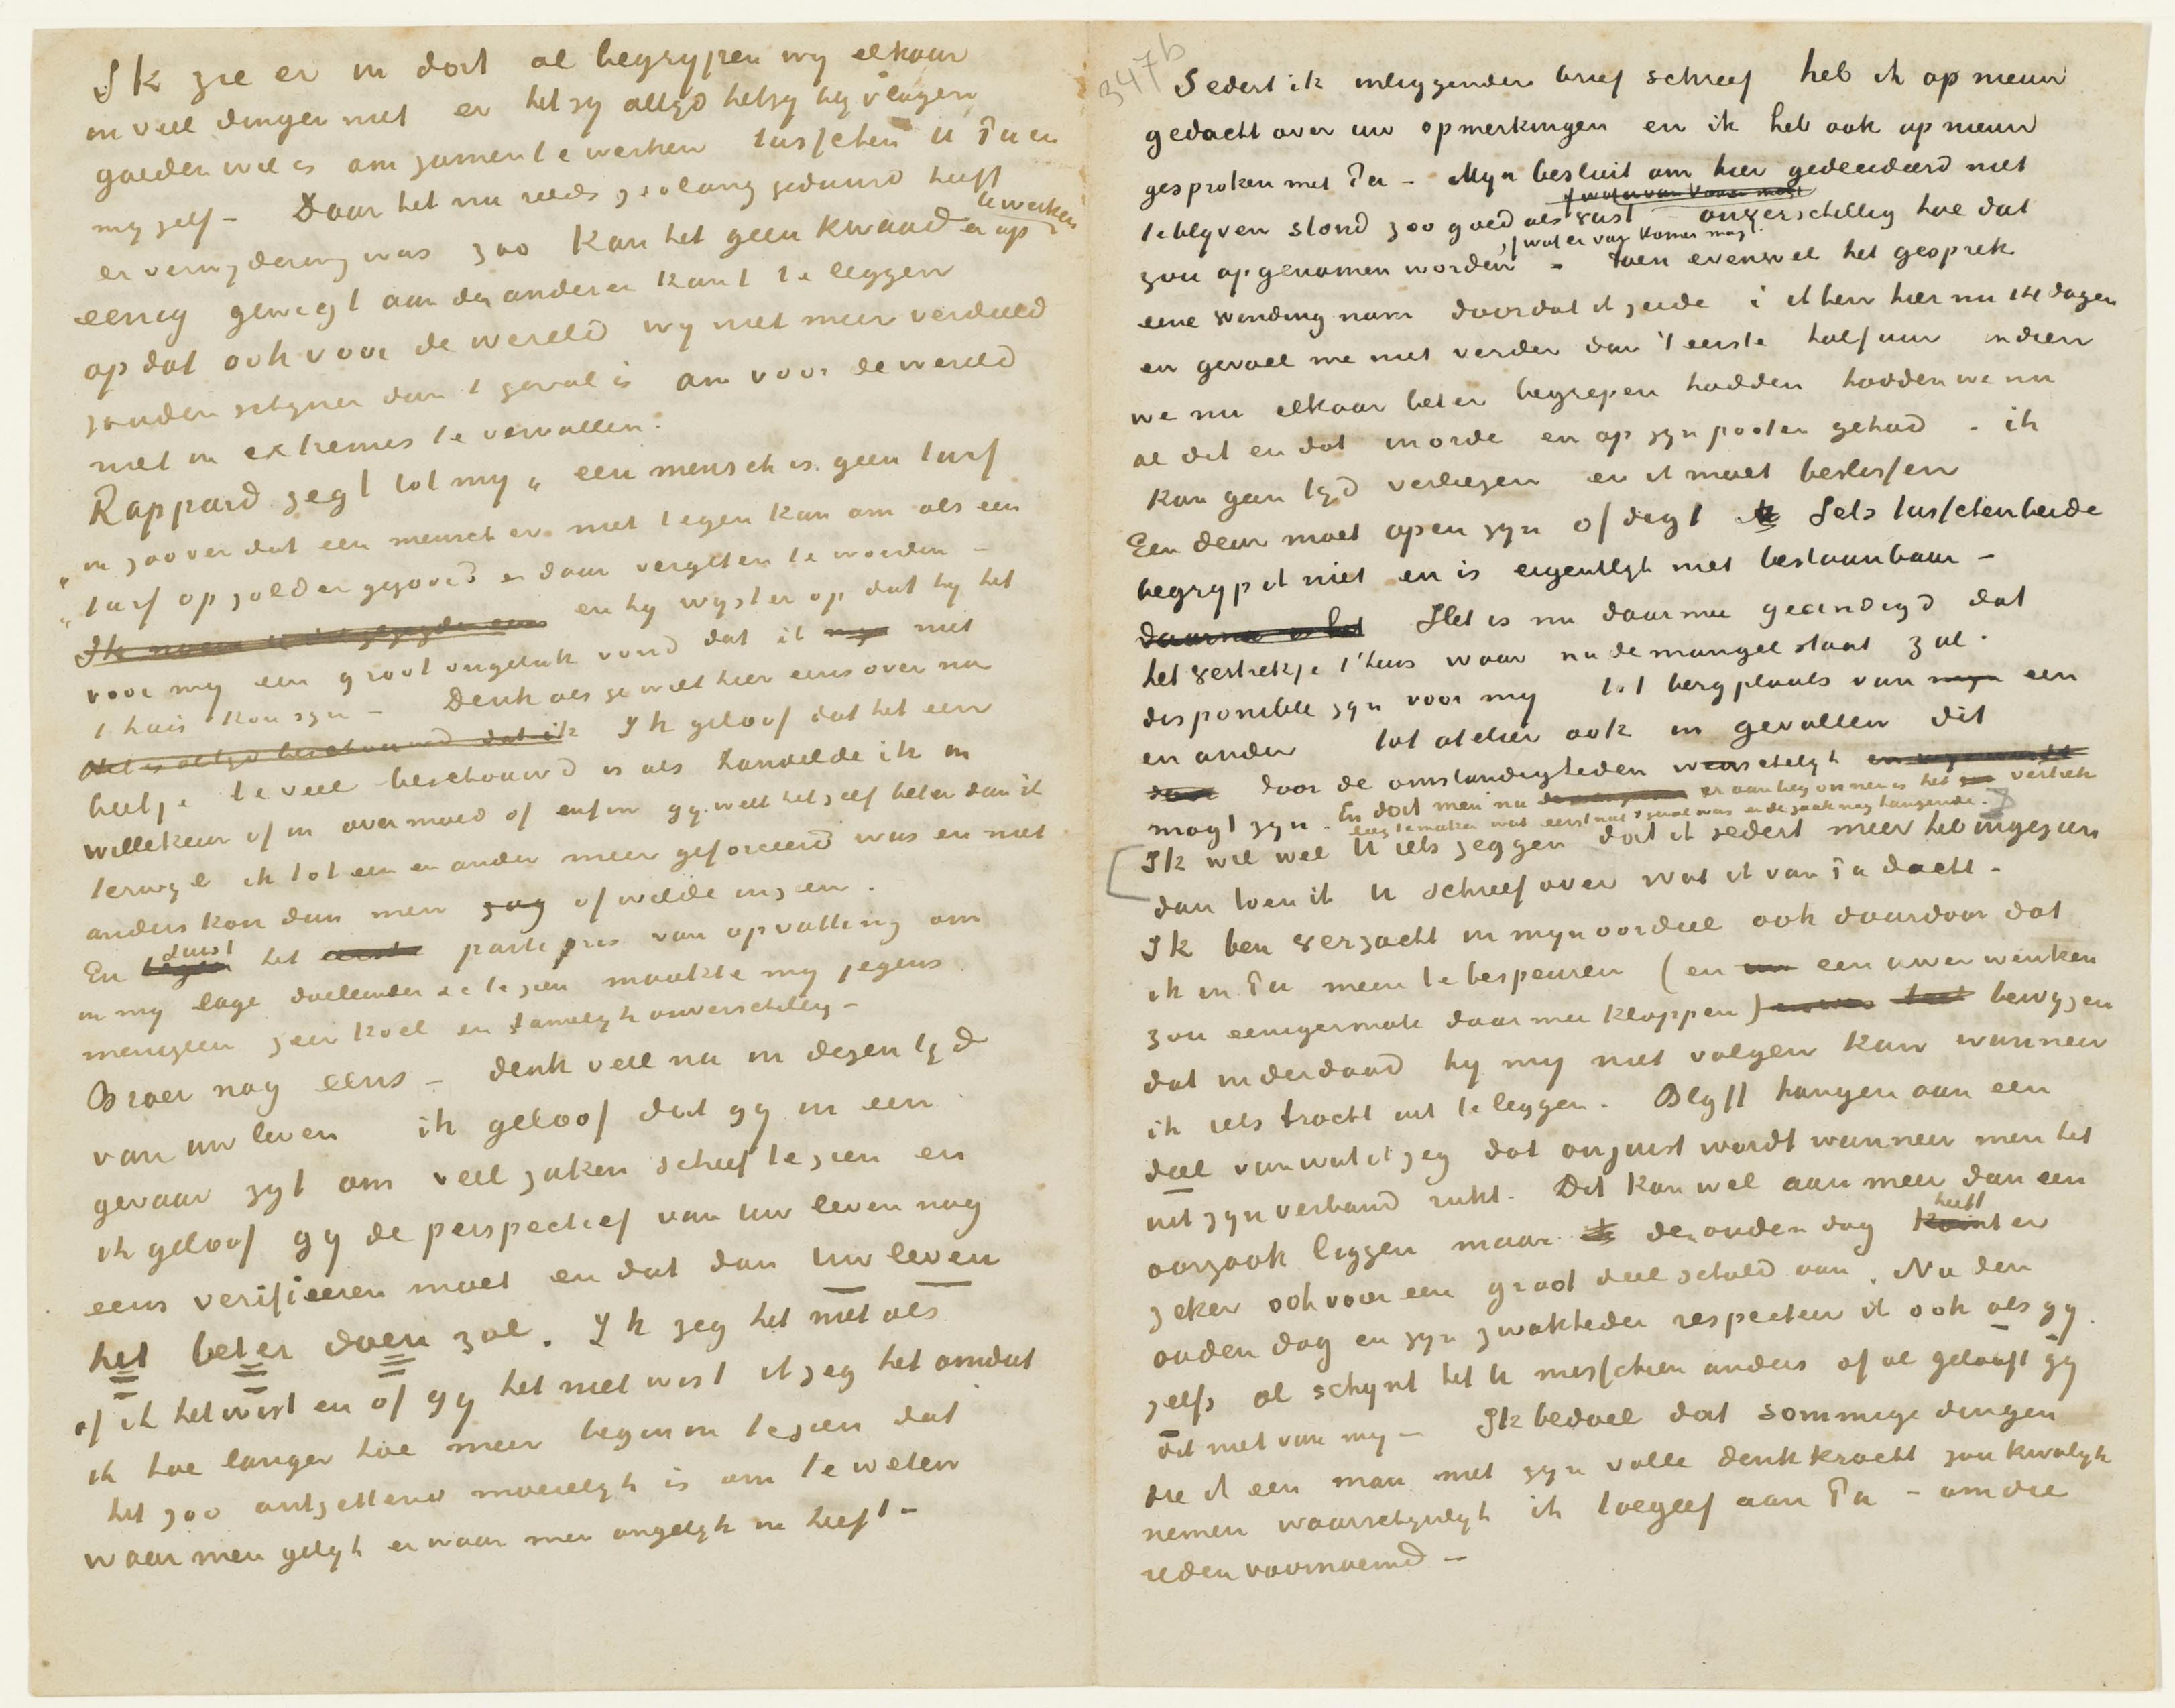 347b
Sedert ik inliggenden brief schreef heb ik op nieuw
gedacht over uw opmerkingen en ik heb ook op nieuw
gesproken met Pa – Myn besluit om hier gedecideerd niet
te blyven stond zoo goed als vast – onverschillig hoe dat
zou opgenomen worden of wat er van komen mogt. – toen evenwel het gesprek
eene wending nam doordat ik zeide: ik ben hier nu 14 dagen
en gevoel me niet verder dan 't eerste half uur indien
we nu elkaar beter begrepen hadden hadden we nu
al dit en dat in orde en op zyn pooten gehad – ik
kan geen tyd verliezen en ik moet beslissen
Een deur moet open zyn of digt Iets tusschenbeide
begryp ik niet en is eigentlyk niet bestaanbaar –
Het is nu daarmee geeindigd dat
het vertrekje t'huis waar nu de mangel staat zal
disponible zyn voor my tot bergplaats van een
en ander tot atelier ook in gevallen dit
door de omstandigheden wenschelyk
mogt zyn. En dat men nu er aan begonnen is het vertrek
leeg te maken wat eerst niet 't geval was en de zaak nog hangende.
Ik wil wel U iets zeggen dat ik sedert meer heb ingezien
dan toen ik U schreef over wat ik van Pa dacht.
Ik ben verzacht in myn oordeel ook daardoor dat
ik in Pa meen te bespeuren (en een uwer wenken
zou eenigermate daarmee kloppen) bewyzen
dat inderdaad hy my niet volgen kan wanneer
ik iets tracht uit te leggen. Blyft hangen aan een
deel van wat ik zeg dat onjuist wordt wanneer men het
uit zyn verband rukt. Dit kan wel aan meer dan een
oorzaak liggen maar de ouden dag heeft er
zeker ook voor een groot deel schuld van. Nu den
ouden dag en zyn zwakheden respecteer ik ook als gy
zelfs al schynt het U misschien anders of al gelooft gy
dit niet van my – Ik bedoel dat sommige dingen
die ik een man met zyn volle denkkracht zou kwalyk
nemen waarschynlyk ik toegeef aan Pa – om die
reden voornoemd –
Ik zie er in dat al begrypen wy elkaar
in veel dingen niet er hetzy altyd hetzy by vlagen
goeden wil is om zamen te werken tusschen U Pa en
my zelf – Daar het nu reeds zoolang geduurd heeft
er verwydering was zoo kan het geen kwaad er op te werken
eenig gewigt aan den anderen kant te leggen
opdat ook voor de wereld wy niet meer verdeeld
zouden schynen dan 't geval is om voor de wereld
niet in extremes te vervallen.
Rappard zegt tot my „een mensch is geen turf
„in zoover dat een mensch er niet tegen kan om als een
„turf op zolder gegooid en daar vergeten te worden –
en hy wyst er op dat hy het
voor my een groot ongeluk vond dat ik niet
t'huis kon zyn – Denk als ge wilt hier eens over na
Ik geloof dat het een
beetje te veel beschouwd is als handelde ik in
willekeur of in overmoed of enfin gy weet het zelf beter dan ik
terwyl ik tot een en ander meer geforceerd was en niet
anders kon dan men of wilde inzien.
En juist het parti pris van opvatting om
in my lage doeleinden te zien maakte my jegens
menigeen zeer koel en tamelyk onverschillig –
Broer nog eens – denk veel na in dezen tyd
van uw leven ik geloof dat gy in een
gevaar zyt om veel zaken scheef te zien en
ik geloof gy de perspectief van uw leven nog
eens verifieeren moet en dat dan uw leven
het beter doen zal. Ik zeg het niet als
of ik het wist en of gy het niet wist ik zeg het omdat
ik hoe langer hoe meer begin in te zien dat
het zoo ontzettend moeielyk is om te weten
waar men gelyk en waar men ongelyk in heeft –